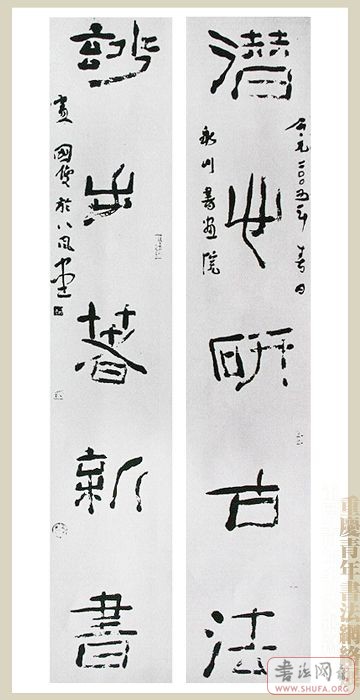 潛心研古法
公元二〇〇五年春日
永川書畫院
玅手著新書
於八風堂
重慶青年書法網絡
书法网
WWW.SHUFA.ORG